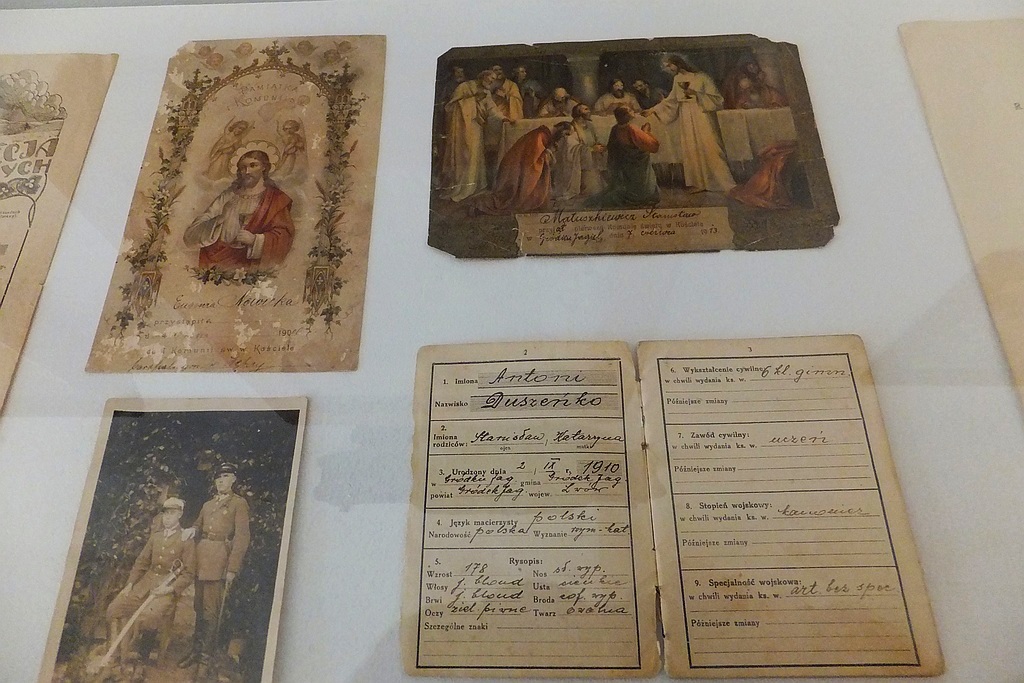 CJA
YCH
PAMIĄTKA
KOMUNII
Nowicka
przystąpiła
190
do I. Komunii św. w Kościele
parafialnym
Matuszkiewicz Stanisław
przyjął pierwszą Komunię świętą w Kościele
w Gródku Jagiel. dnia 7 czerwca 1913.
2
1. Imiona Antoni
Nazwisko Duszeńko
2.
Imiona rodziców: Stanisław, Katarzyna
ojca matki
3. Urodzony dnia 2 IX r. 1910
w Gródku Jag gmina Gródek Jag
powiat Gródek Jag wojew. Lwów
4. Język macierzysty polski
Narodowość polska Wyznanie rzym-kat.
5. Rysopis:
Wzrost 178 Nos śr. wyp.
Włosy j. blond Usta
Brwi j. blond Broda cof. wyp.
Oczy ziel. piwne Twarz owalna
Szczególne znaki
3
6. Wykształcenie cywilne
w chwili wydania ks. w. 6 kl. gimn
Późniejsze zmiany
7. Zawód cywilny:
w chwili wydania ks. w. uczeń
Późniejsze zmiany
8. Stopień wojskowy:
w chwili wydania ks. w. kanonier
Późniejsze zmiany
9. Specjalność wojskowa:
w chwili wydania ks. w. art. bez spec
Późniejsze zmiany
R